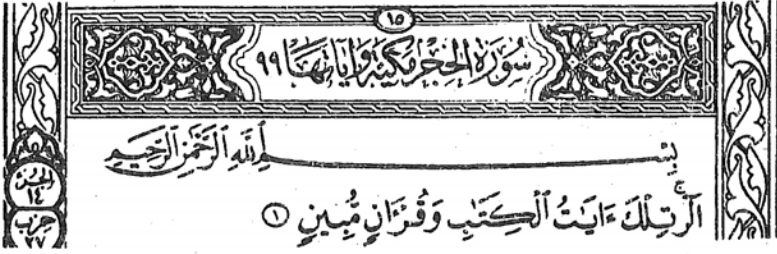 ١٥
سُورَةُ الحِجْرِ مَكِيَّة وَآيَاتُهَا ٩٩
بِسْــــــــمِ ٱللَّهِ ٱلرَّحْمَٰنِ ٱلرَّحِيمِ
الٓرۚ تِلْكَ ءَايَٰتُ ٱلْكِتَٰبِ وَقُرْءَانٍ مُّبِينٍ ١
الجزء
١٤
حزب
٢٧